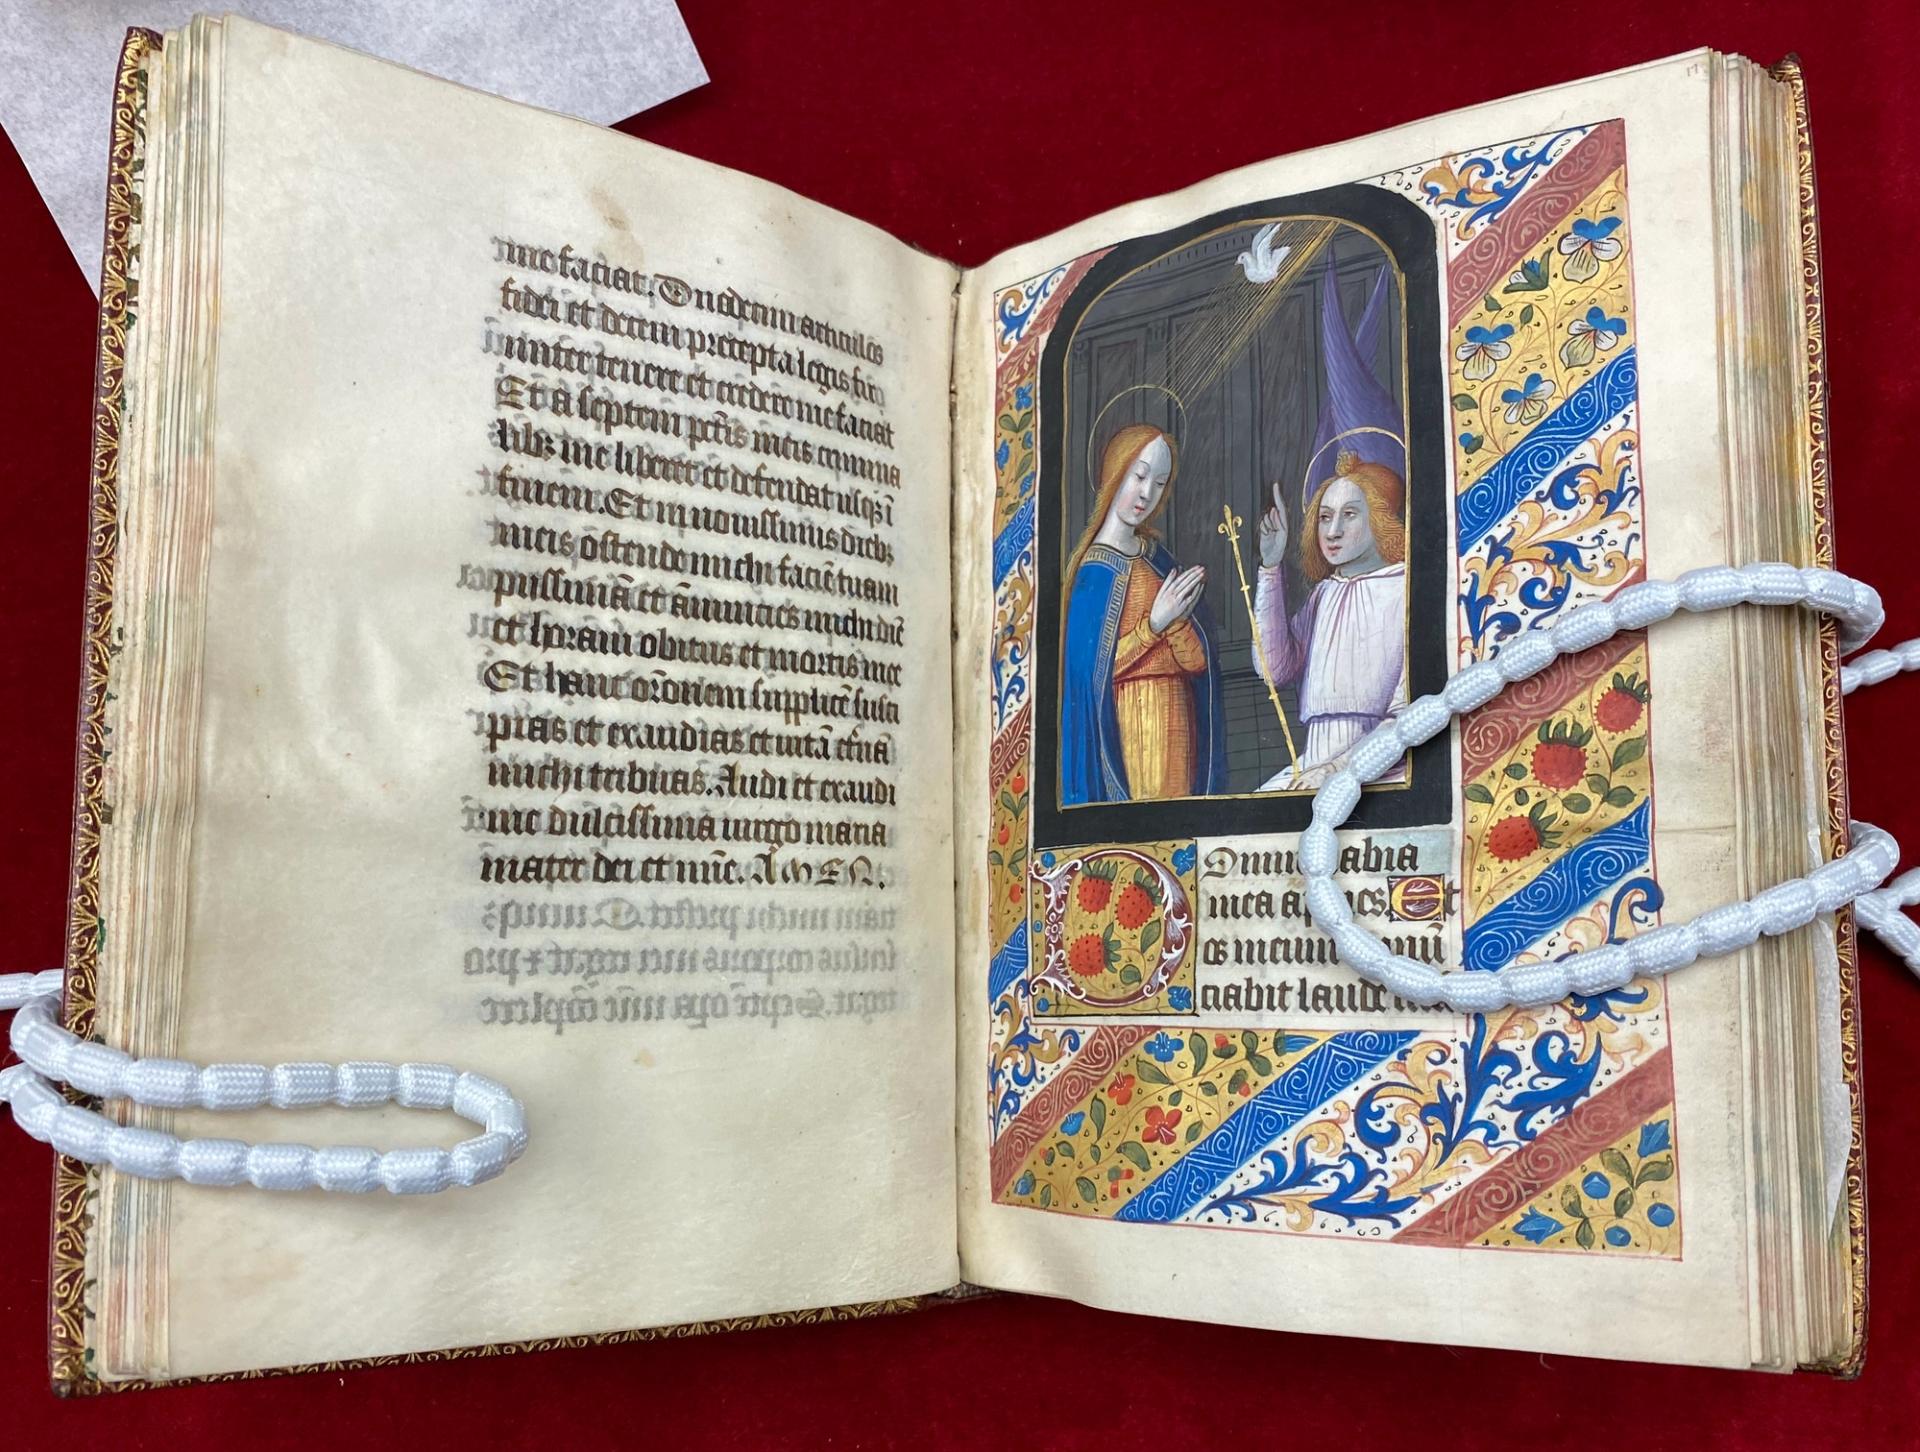 me faciat. Duodecim articulos
fidei et decem precepta legis fir
miter tenere et credere me faciat
Et a septem pctis meis crimina
libꝫ me liberet et defendat usqꝫ ĩ
finem. Et in nouissimis diebꝫ
meis õstende michi faciẽ tuam
et ãnuncies michi diẽ
et horam obitus et mortis mee
Et hanc orõnem supplicẽ susci
pias et exaudias et uitã etnã
michi tribuas. Audi et exaudi
me dulcissima uirgo maria
mater dei et mĩe. AMEN.
17
Domine labia
mea aperies. Et
os meum
ciabit laudẽ